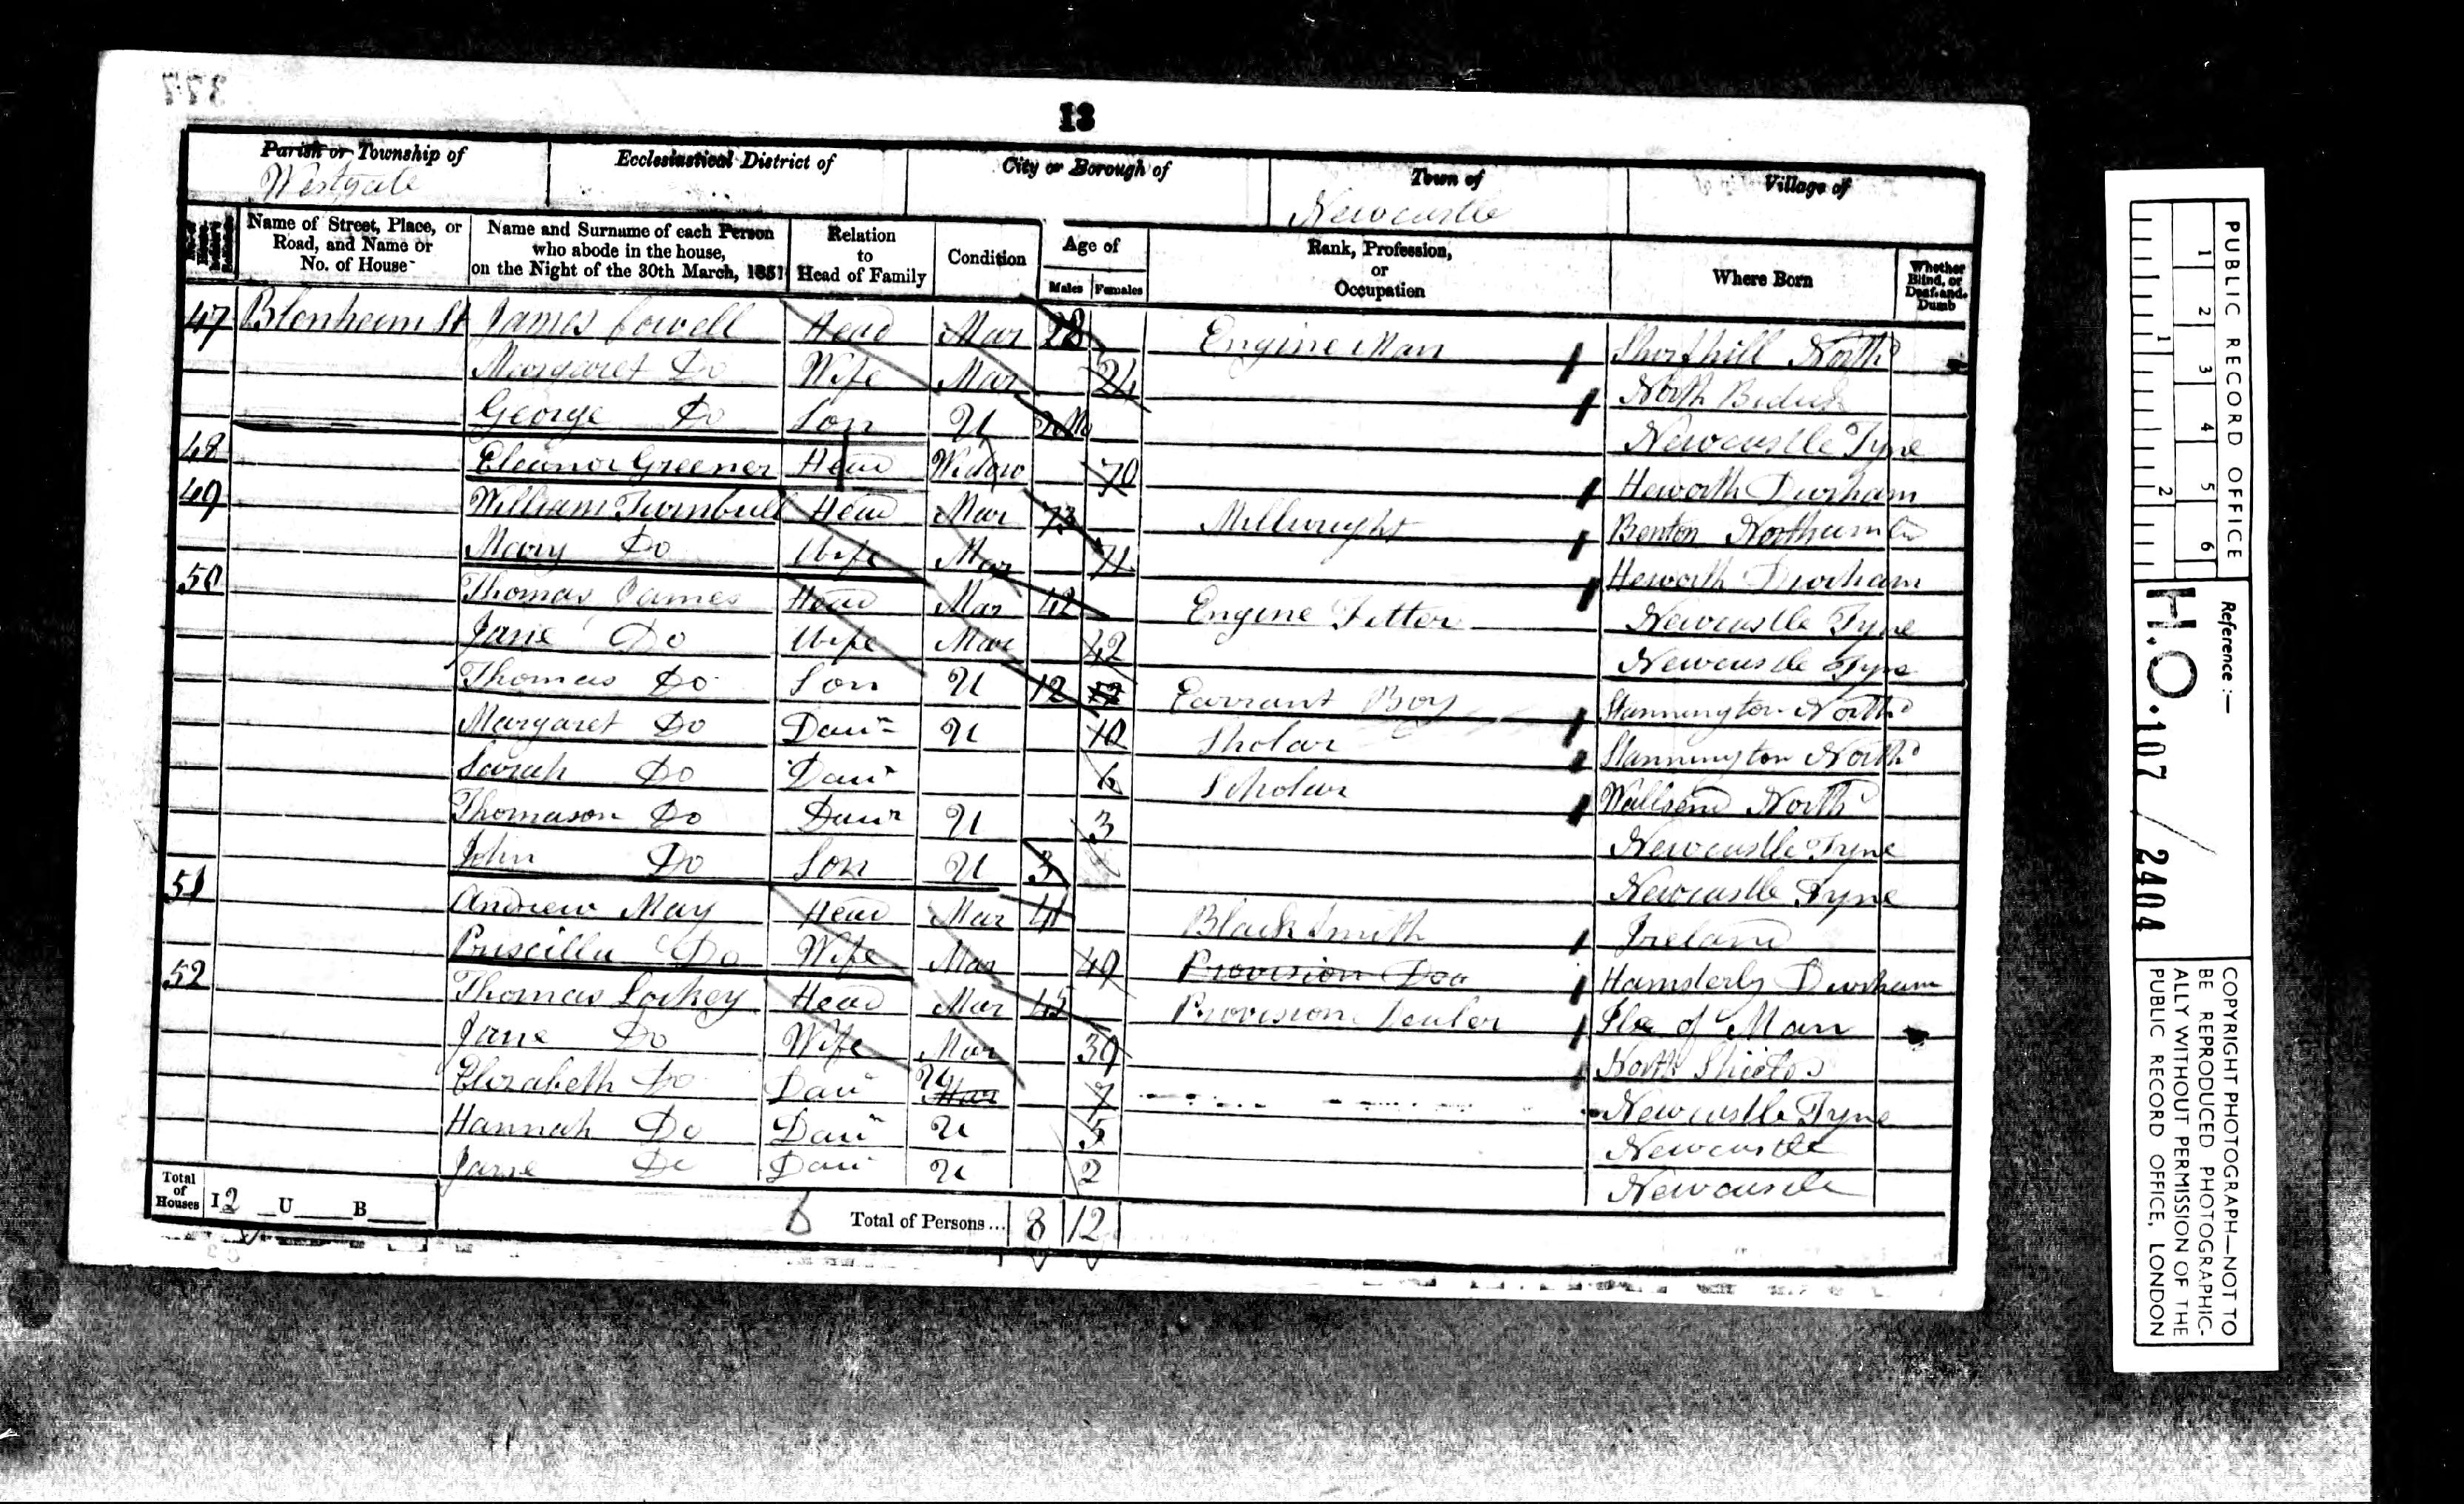 377
13
Parish or Township of Ecclesiastical District of City or Borough of Town of Village of
Westgate Newcastle
Name of Street, Place, or Road, and Name or No. of House
Name and Surname of each Person who abode in the house, on the Night of the 30th March, 1851
Relation to Head of Family
Condition
Age of
Males Females
Rank, Profession, or Occupation
Where Born
Whether Blind, or Deaf-and-Dumb
47 Blenheim St James Cowell Head Mar 28 Engine Man North^d
Margaret Do Wife Mar 24 North
George Do Son U Newcastle Tyne
48 Eleanor Greener Head Widow 70 Heworth Durham
49 William Turnbull Head Mar 73 Millwright Benton Northumb
Mary Do Wife Mar 71 Heworth Durham
50 Thomas James Head Mar 42 Engine Fitter Newcastle Tyne
Jane Do Wife Mar 42 Newcastle Tyne
Thomas Do Son U 12 12 Earrant Boy Stannington North^d
Margaret Do Daur U 10 Sholar Stannington North^d
Sarah Do Daur 6 Scholar Wallsend North^d
Thomason Do Daur U 3 Newcastle Tyne
John Do Son U 3 Newcastle Tyne
51 Andrew May Head Mar 41 Black Smith Ireland
Priscilla Do Wife Mar 49 Provision Dea Hamsterly Durham
52 Thomas Lockey Head Mar 45 Provision Dealer Isle of Man
Jane Do Wife Mar 39 North Shields
Elizabeth Do Daur U Mar 7 Newcastle Tyne
Hannah Do Daur U 5 Newcastle
Jane Do Daur U 2 Newcastle
Total of Houses I 2 U B 6 Total of Persons... 8 12
PUBLIC RECORD OFFICE
1 2 3 4 5 6
1 2
Reference :—
H.O. 107 / 2404
COPYRIGHT PHOTOGRAPH—NOT TO
BE REPRODUCED PHOTOGRAPHIC-
ALLY WITHOUT PERMISSION OF THE
PUBLIC RECORD OFFICE, LONDON